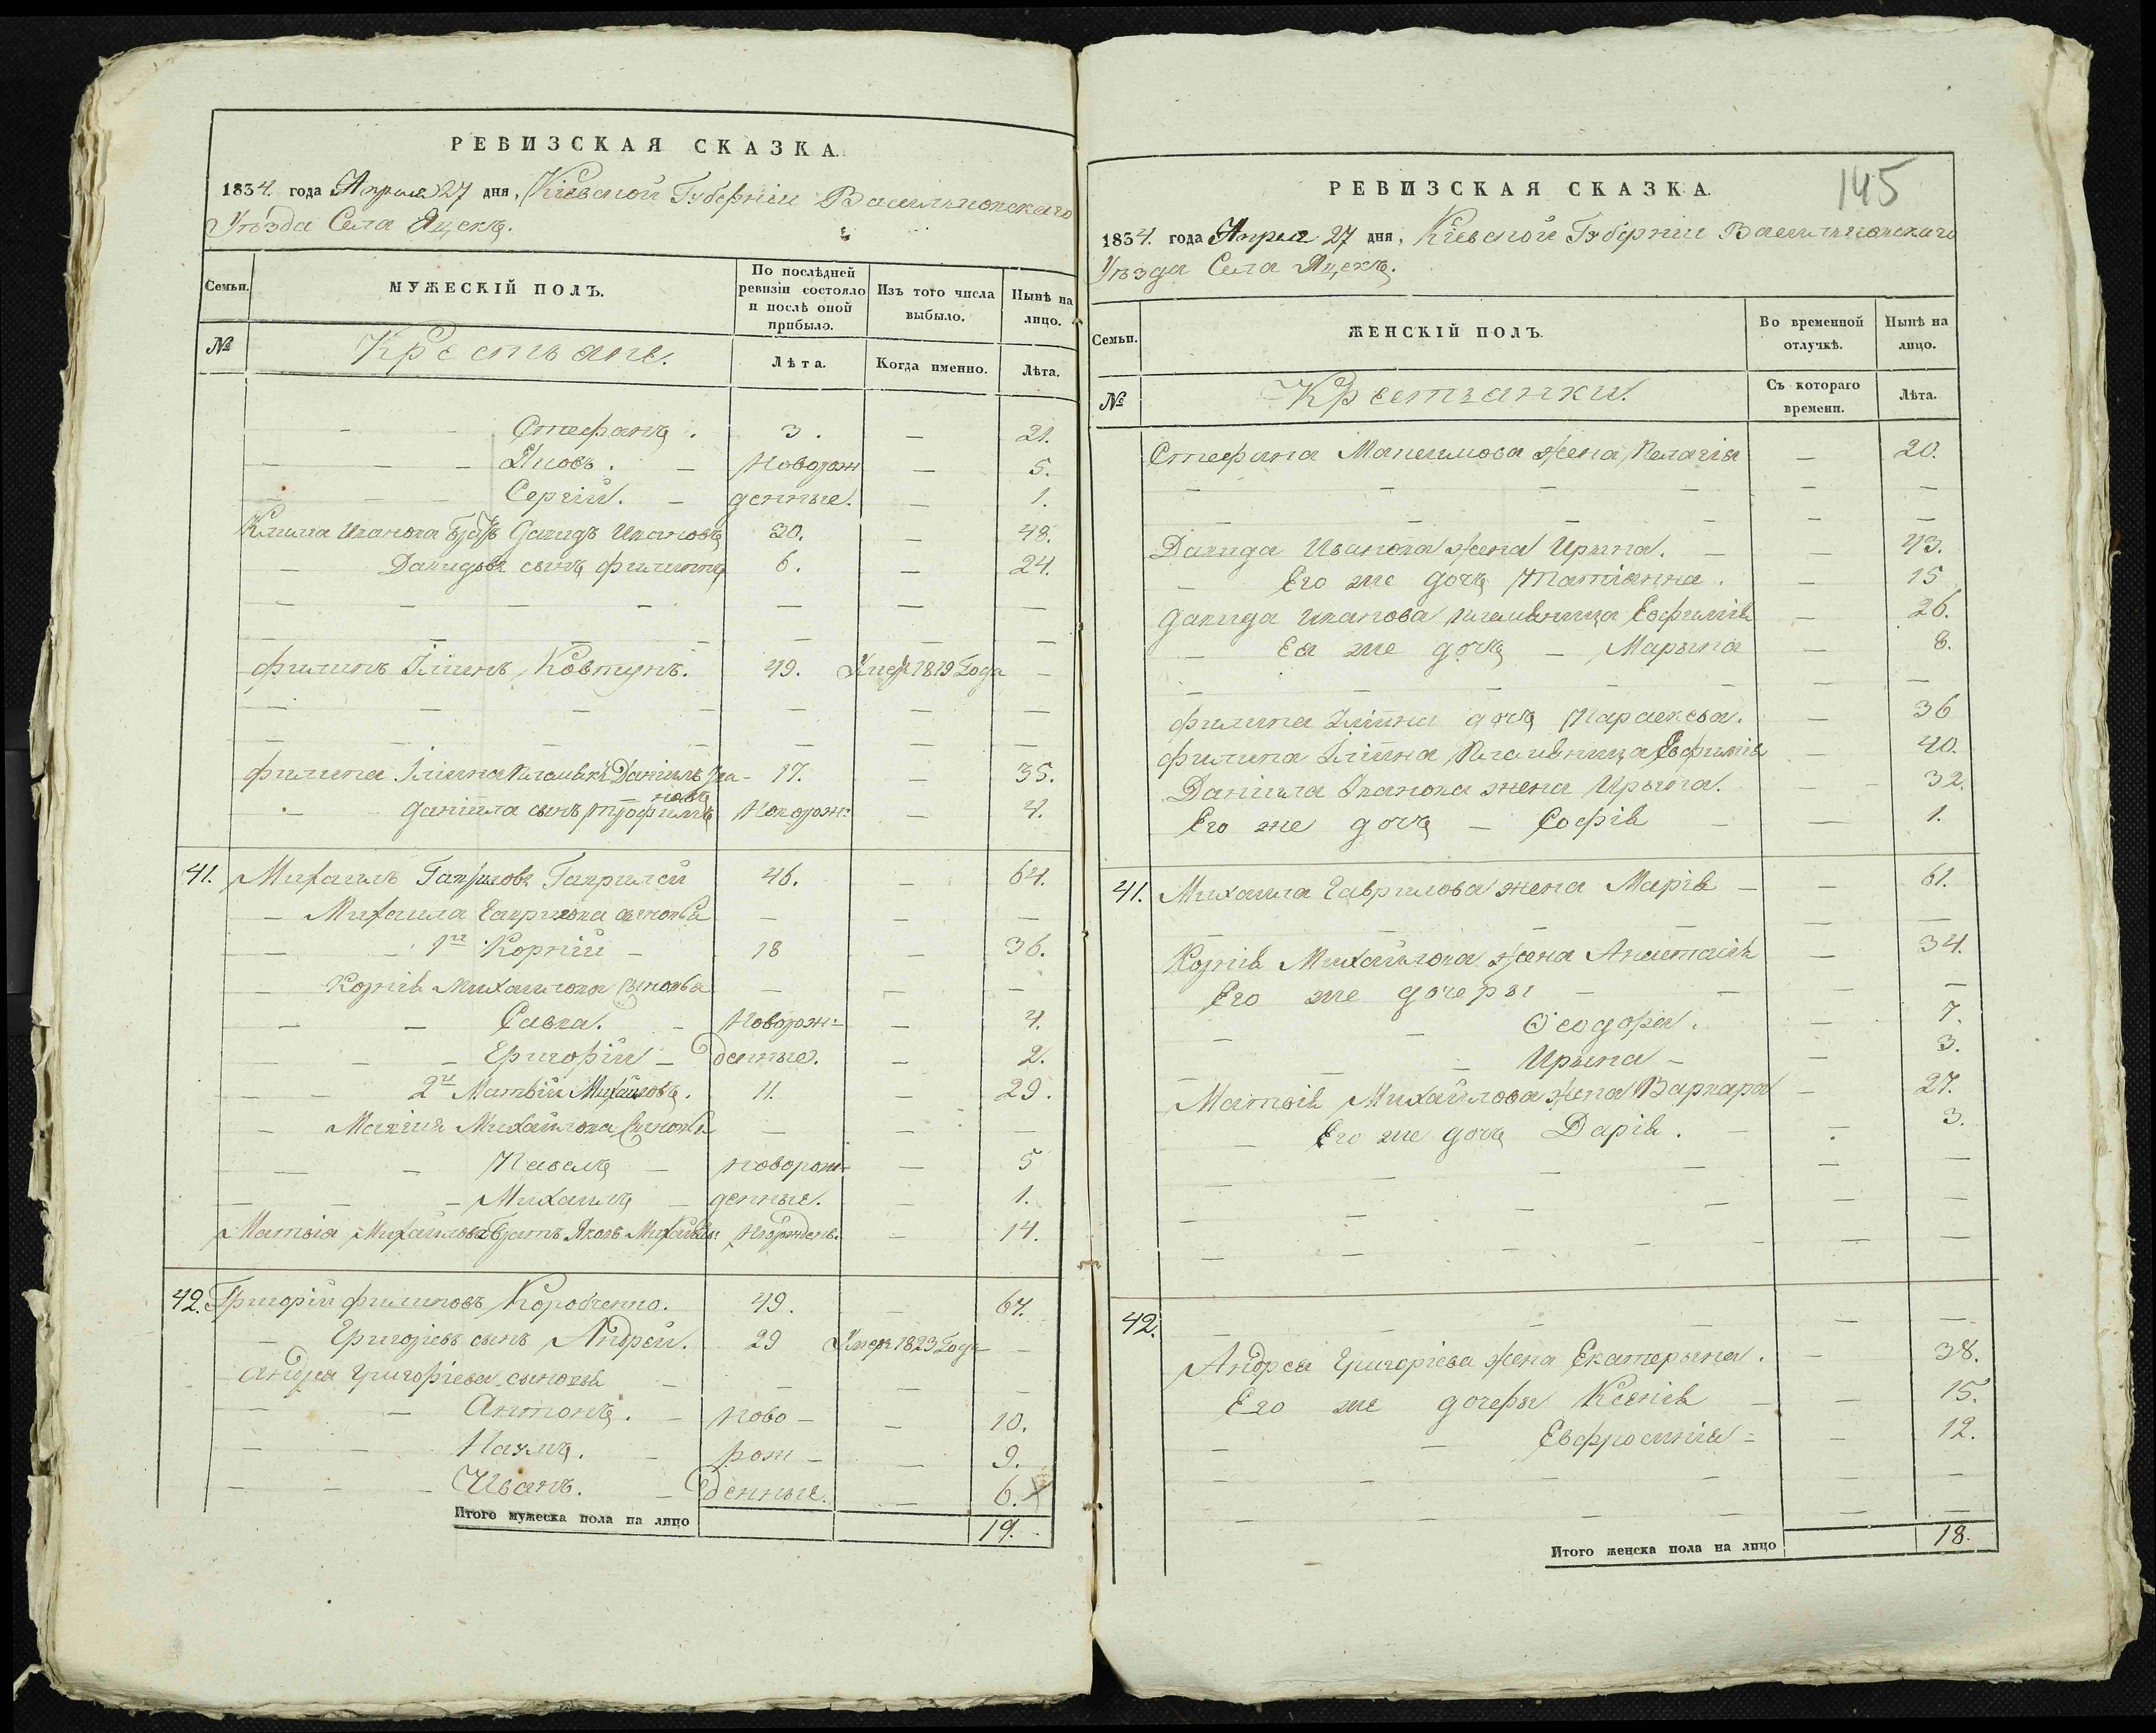 РЕВИЗСКАЯ СКАЗКА.
1834. года Апреля 27 дня, Кіевской Губерніи Васильковскаго
Уѣзда Села Яцекъ.
Семьи.
МУЖЕСКІЙ ПОЛЪ.
По послѣдней ревизіи состояло и послѣ оной прибыло.
Изъ того числа выбыло.
Нынѣ на лицо.
№
Крестьяне.
Лѣта.
Когда именно.
Лѣта.
— — Стефанъ. 3. — 21.
— — — Яковъ. — Новорож — 5.
— — — Сергій. — денные. — 1.
Клима Иванова братъ Давидъ Ивановъ 30. — 48.
— Давидовъ сынъ филиппъ 6. — 24.
— — — — — — —
— — — — — — —
филипъ Ілiинъ Ковтунъ. 49. 1819 Года —
— — — — — — —
— — — — — — —
филипа Іліина племѣн Даніилъ Ива- 17. — 35.
новъ
— Даніила сынъ трофимъ Новорож: — 4.
41. Михаилъ Гавриловъ Гаврилей 46. — 64.
— Михаила Гаврилова сыновья — — —
— — 1й Корній — 18 — 36.
— Корнія Михаилова сыновья — — —
— — Савка. — Новорож- — 4.
— — — Григорій — денные. — 2.
— — 2й Матвій Михайловъ. 11. — 29.
— Михайлова сыновья — — —
— — Павелъ — новорож- — 5
— — — Михаилъ — денные. — 1.
Матвія Михайлова братъ Яковъ — 14.
42. Григорій филиповъ Коробченко. 49. — 67.
— Григоріевъ сынъ Андрей. 29 1823 Года —
Андрея Григоріева сыновья — — — —
— — Антонъ. — ново- — 10.
— — Наумъ. — рож- — 9.
— — — Иванъ. — денные. — 6.
Итого мужеска пола на лицо 19.
145
РЕВИЗСКАЯ СКАЗКА.
1834. года Апреля 27 дня, Кіевской Губерніи Васильковскаго
Уѣзда Села Яцекъ.
Семьи.
ЖЕНСКІЙ ПОЛЪ.
Во временной отлучкѣ.
Нынѣ на лицо.
№
Крестьянки.
Съ котораго времени.
Лѣта.
Стефана Максимова жена Пелагія — 20.
— — — — — —
— — — — — —
Давида Иванова жена Ирына. — — 43.
— Его же дочъ Татіанна. — 15
Давида Иванова племѣнница Евфимія — 26.
— Ея же дочъ — Марына — 8.
— — — — — — —
филипа Іліина дочъ Параскева. — 36
филипа Іліина племѣнница Евфимія — 40.
Даніила Иванова жена Ирына. — — 32.
Его же дочъ — Софія — — 1.
41. Михаила Гаврилова жена Марія — — 61.
— — — — — —
Корнія Михайлова жена Анастасія — 34.
Его же дочеры — — — —
— — Ѳеодора. — 7.
— — — Ирына — — 3.
Матвія Михайлова жена Варвара — 27.
— Его же дочъ Дарія. — — 3.
— — — — — —
— — — — — —
— — — — — —
42. — — — — — —
Андрея Григоріева жена Екатерына. — 38.
Его же дочеры Ксенія — — 15.
— — Евфросинія — — 12.
— — — — — —
— — — — — —
Итого женска пола на лицо 18.